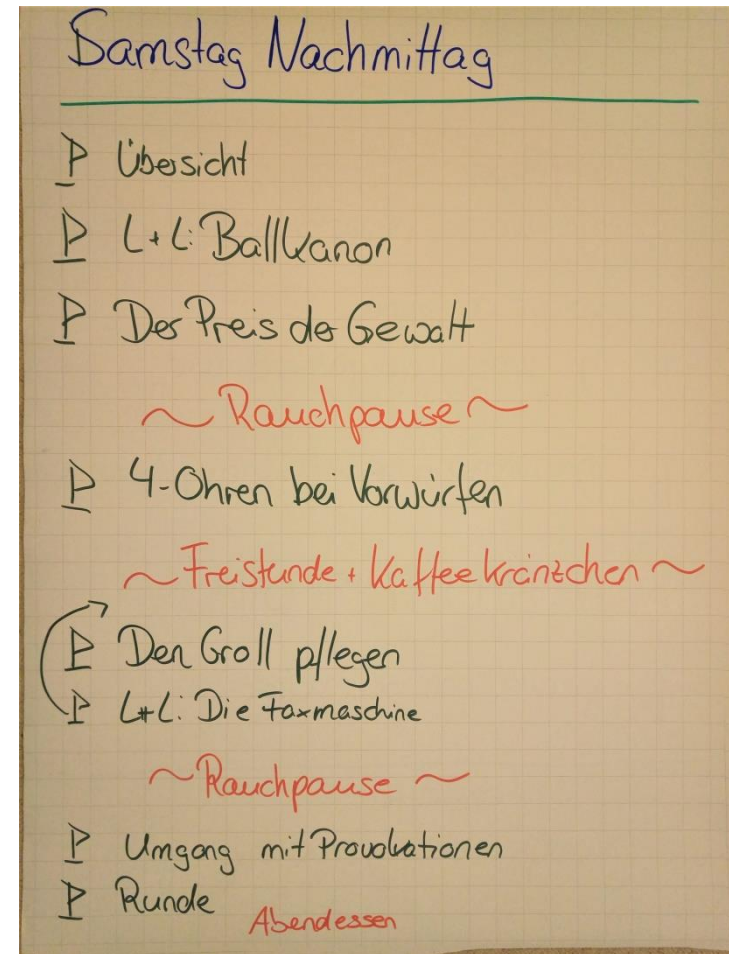 Samstag Nachmittag
Übersicht
L+L: Ballkanon
Der Preis der Gewalt
~ Rauchpause ~
4-Ohren bei Vorwürfen
~ Freistunde + Kaffeekränzchen ~
Den Groll pflegen
L+L: Die Faxmaschine
~ Rauchpause ~
Umgang mit Provokationen
Runde
Abendessen